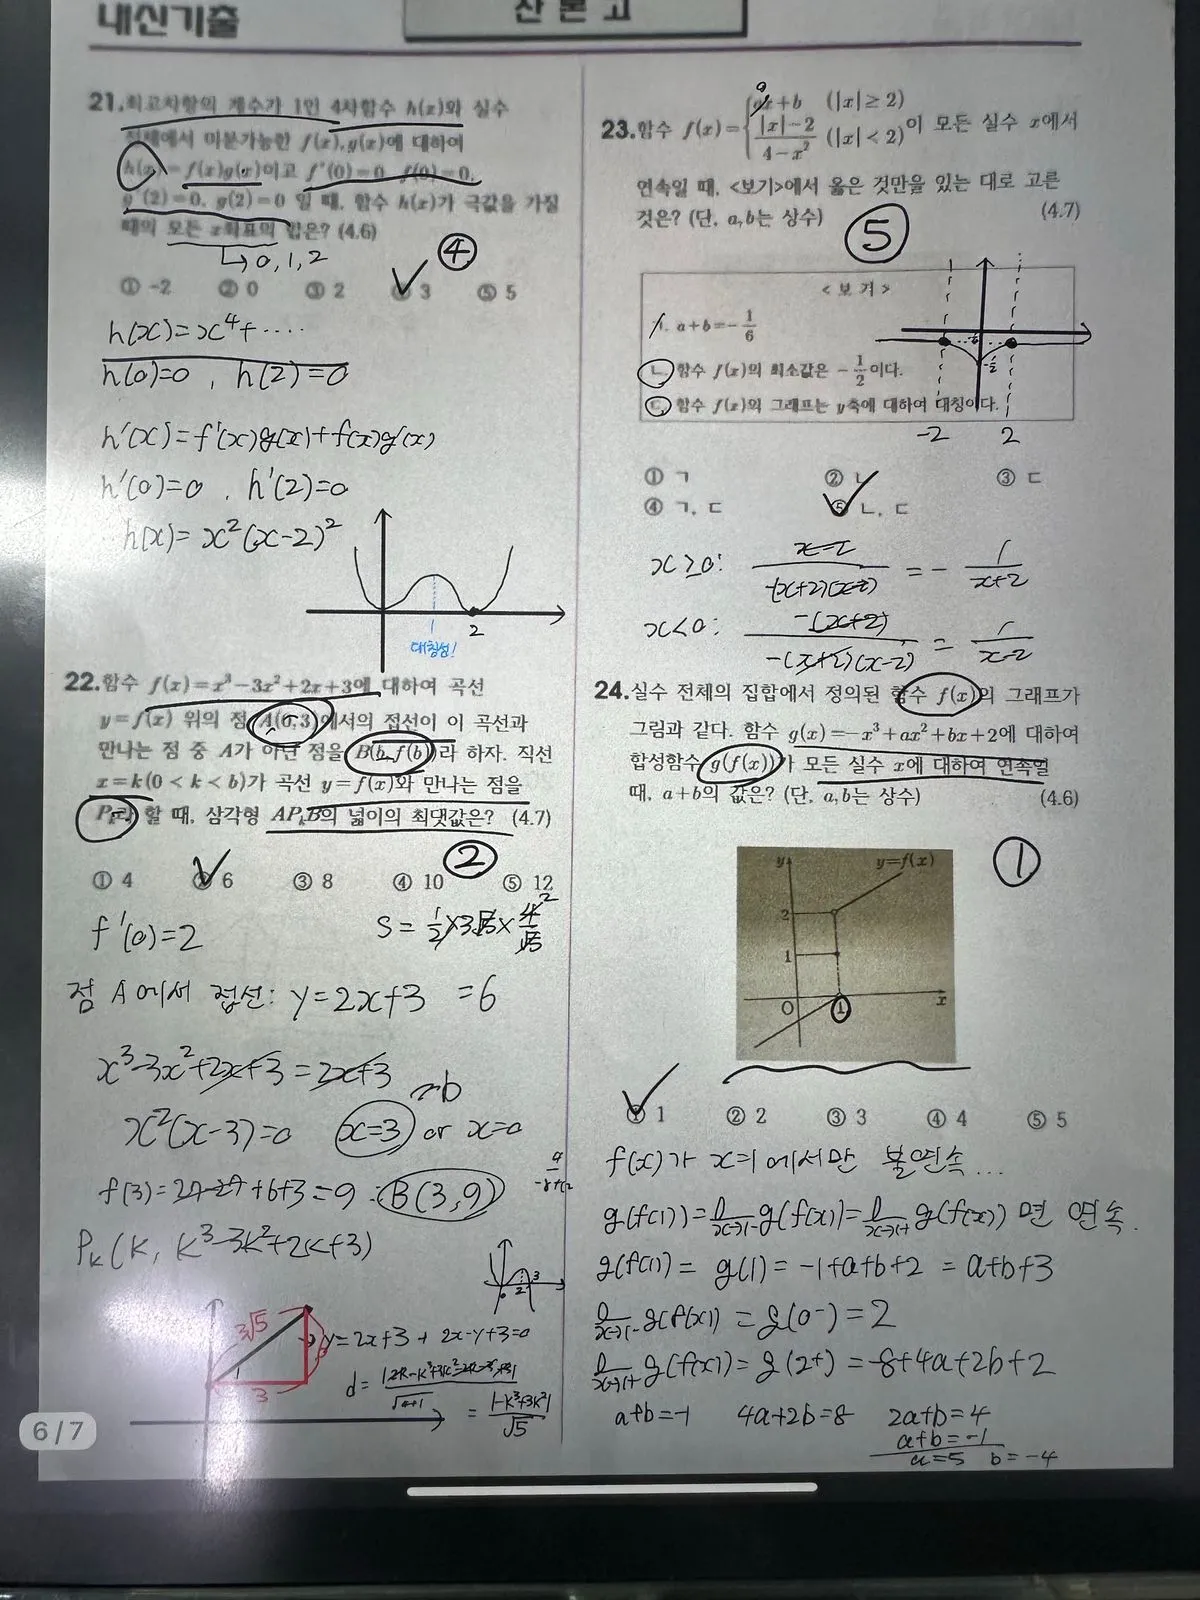 내신기출
산본고
21. 최고차항의 계수가 1인 4차함수 h(x)와 실수
전체에서 미분가능한 f(x), g(x)에 대하여
h(x)=f(x)g(x)이고 f'(0)=0, f(0)=0,
g'(2)=0, g(2)=0 일 때, 함수 h(x)가 극값을 가질
때의 모든 x좌표의 합은? (4.6)
↳ 0, 1, 2
④
① -2 ② 0 ③ 2 ④ 3 ⑤ 5
h(x)=x⁴+····
h(0)=0, h(2)=0
h'(x)=f'(x)g(x)+f(x)g'(x)
h'(0)=0, h'(2)=0
h(x)=x²(x-2)²
1
2
대칭성!
22. 함수 f(x)=x³-3x²+2x+3에 대하여 곡선
y=f(x) 위의 점 A(0, 3)에서의 접선이 이 곡선과
만나는 점 중 A가 아닌 점을 B(b, f(b))라 하자. 직선
x=k(0<k<b)가 곡선 y=f(x)와 만나는 점을
Pₖ라 할 때, 삼각형 APₖB의 넓이의 최댓값은? (4.7)
②
① 4 ② 6 ③ 8 ④ 10 ⑤ 12
f'(0)=2
S=½×3√5×4/√5
2
점 A에서 접선: y=2x+3 =6
x³-3x²+2x+3=2x+3
x²(x-3)=0 x=3 or x=0
→b
f(3)=27-27+6+3=9 ∴B(3,9)
Pₖ(k, k³-3k²+2k+3)
0 2 3
3√5
3
y=2x+3 → 2x-y+3=0
d=
=|-k³+3k²|/√5
23. 함수 f(x)={ax+b (|x|≥2)
(|x|-2)/(4-x²) (|x|<2) 이 모든 실수 x에서
연속일 때, <보기>에서 옳은 것만을 있는 대로 고른
것은? (단, a, b는 상수) (4.7)
⑤
<보기>
ㄱ. a+b=-1/6
ㄴ. 함수 f(x)의 최소값은 -1/2이다.
ㄷ. 함수 f(x)의 그래프는 y축에 대하여 대칭이다.
-1/2
-2 2
① ㄱ ② ㄴ ③ ㄷ
④ ㄱ, ㄷ ⑤ ㄴ, ㄷ
x≥0: (x-2)/-(x+2)(x-2) = -1/(x+2)
x<0: -(x+2)/-(x+2)(x-2) = 1/(x-2)
24. 실수 전체의 집합에서 정의된 함수 f(x)의 그래프가
그림과 같다. 함수 g(x)=-x³+ax²+bx+2에 대하여
합성함수 g(f(x))가 모든 실수 x에 대하여 연속일
때, a+b의 값은? (단, a, b는 상수) (4.6)
①
y
y=f(x)
2
1
O 1 x
① 1 ② 2 ③ 3 ④ 4 ⑤ 5
f(x)가 x=1에서만 불연속...
g(f(1))=lim x→1- g(f(x))=lim x→1+ g(f(x))면 연속.
g(f(1))=g(1)=-1+a+b+2=a+b+3
lim x→1- g(f(x))=g(0-)=2
lim x→1+ g(f(x))=g(2+)=-8+4a+2b+2
a+b=-1 4a+2b=8 2a+b=4
a+b=-1
a=5 b=-4
6/7